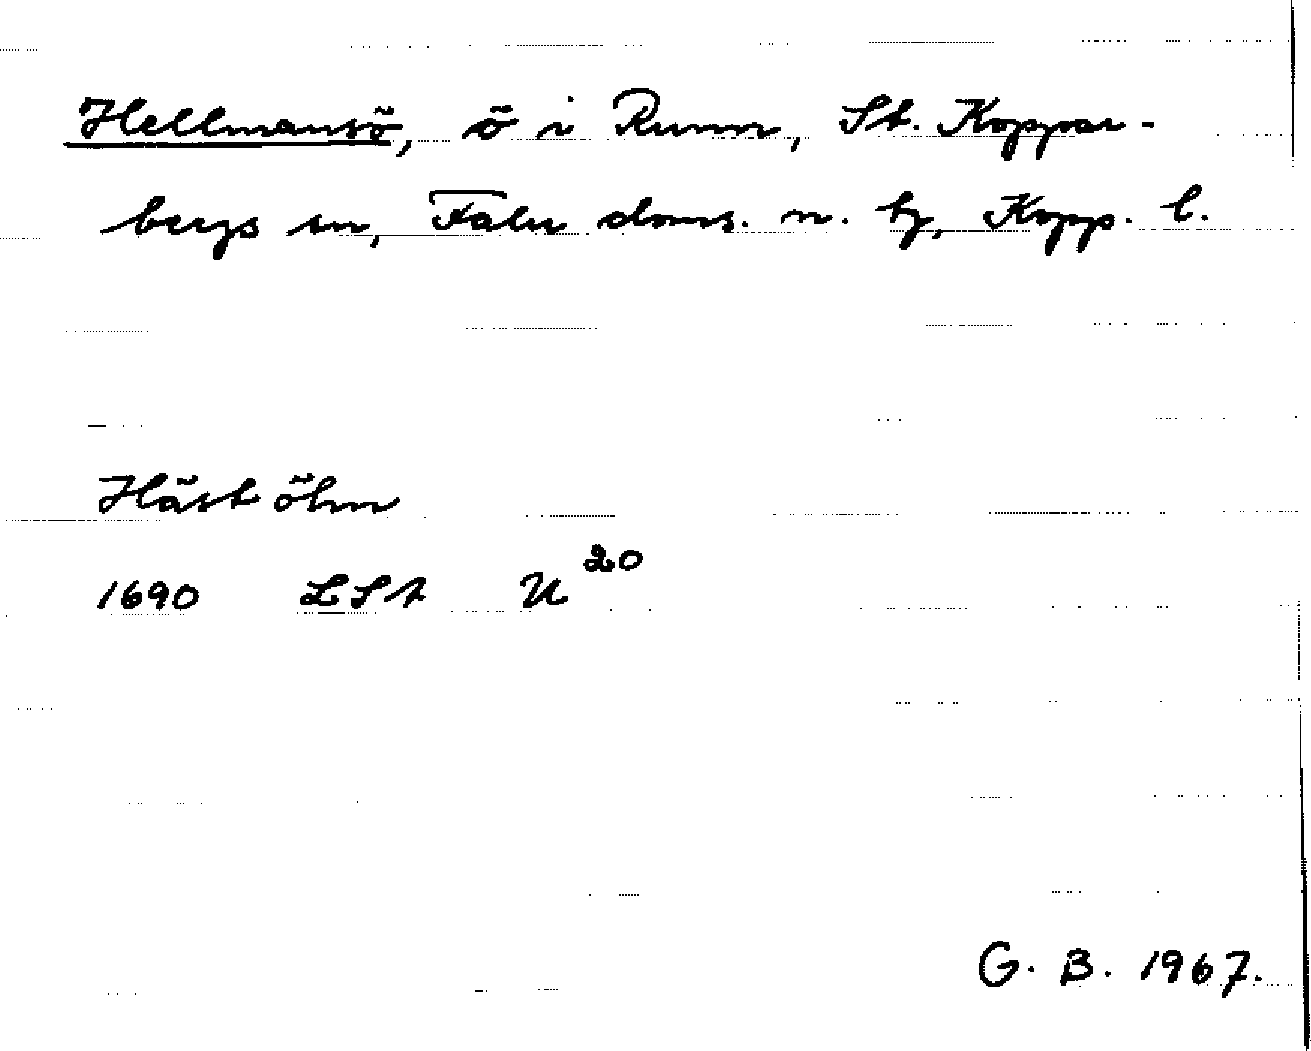 Hellmansö, ö i Runn, St. Koppar-
bergs sn, Falu doms. n. tg, Kopp. l.
Häst öhn
1690 LSt U 20
G. B. 1967.